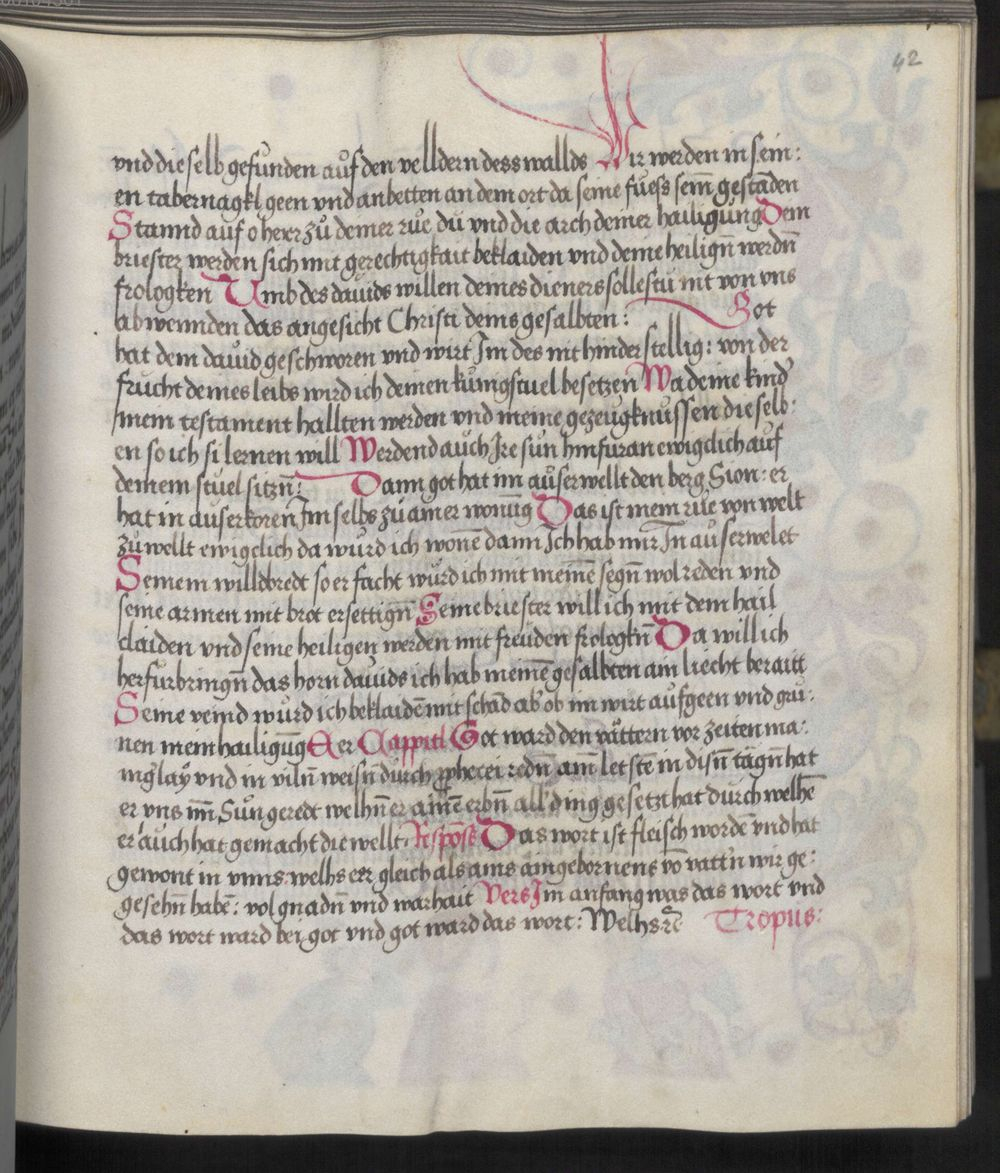 42
vnd die selb gefunden auf den velldern dess wallds Wir werden in sein:
en tabernagkl geen vnd anbetten an dem ort da seine fuess sein̄ gestāden
Stannd auf o herr zů deiner růe dů vnd die arch deiner hailigung Dein
briester werden sich mit gerechtigkait beklaiden vnd deine heiligñ werdñ
frologken Umb des dauids willen deines dieners sollestu nit von vns
abwennden das angesicht Christi deins gesalbten: Got
hat dem dauid geschworen vnd wirt Im des nit hinderstellig: von der
frucht deines leibs wird ich deinen kůnigstuel besetzen Wa deine kind
mein testament hallten werden vnd meine gezeugknussen die selb:
en so ich si lernen will Werdend auch Ire sun hinfuran ewigclich auf
deinem stuel sitzñ: Dann got hat im auserwellt den berg Sion: er
hat in auserkoren Im selbs zů ainer wonūg Das ist mein růe von welt
zů wellt ewigclich da wurd ich wonē dann Ich hab mir In auserwelet
Seinem willdbredt so er facht wurd ich mit meinē segñ wol reden vnd
seine armen mit brot ersettigñ Seine briester will ich mit dem hail
claiden vnd seine heiligen werden mit freuden frologkñ Da will ich
herfurbringñ das horn dauids ich hab meinē gesalbten ain liecht beraitt
Seine veind wurd ich beklaidē mit schād ab' ob im wirt aufgeen vnd gru:
nen mein hailigūg Eer Cappitl Got ward den våttern vor zeiten ma:
nig'laÿ vnd in vilñ weisñ durch prophecei redñ am̄ letstē in disñ tågñ hat
er vns im̄ Sun geredt welhñ er ainē erbñ all' ding gesetzt hat durch welhē
er auch hat gemacht die wellt Respōss Das wort ist fleisch wordē vnd hat
gewont in vnns: welhs eer gleich als ains aingebornens võ vatt'n wir ge:
gesehñ habē: vol gnadñ vnd warhait Vers Im anfang was das wort vnd
das wort ward bei got vnd got ward das wort: Welhs ꝛc̄ Tropus: